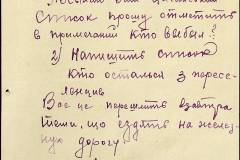 список прошу отметить
в примечании кто выбыл
2) Напишите список
кто остался з пересе-
ленцив
Все це перешлить взавтра
тими, що ездять на желез-
ну дорогу